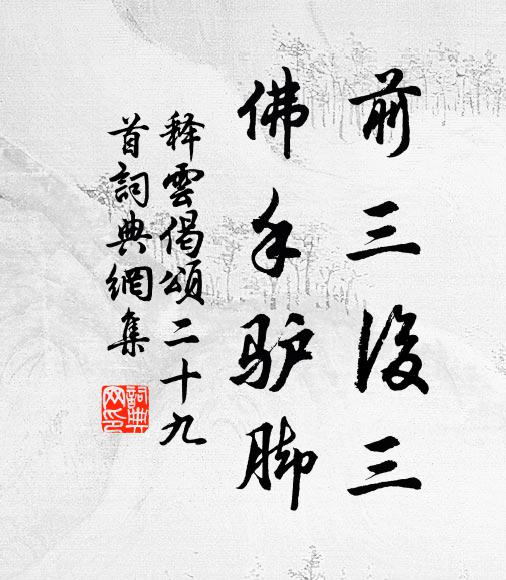 前三後三
佛手驴脚
释雲偈頌二十九
首詞典網集
詞典网印